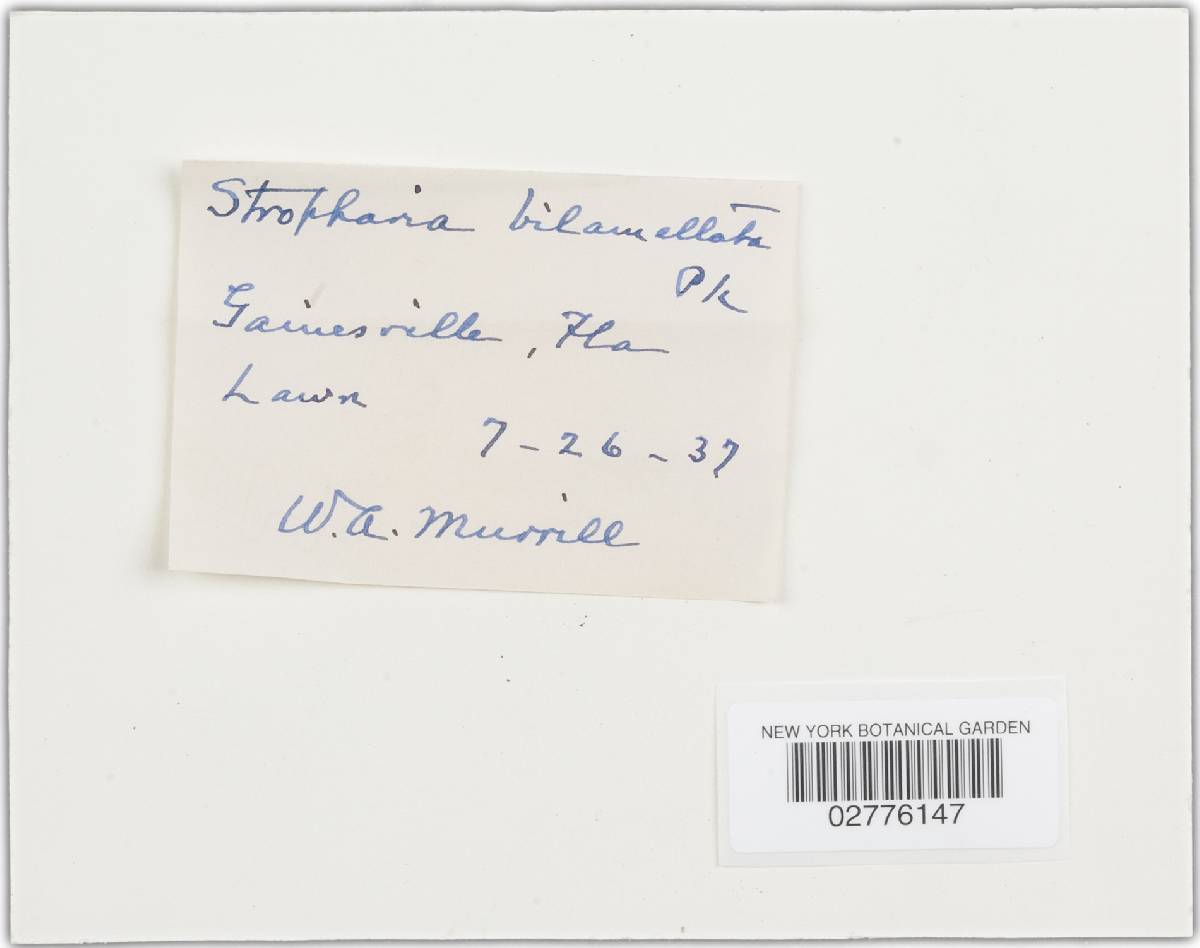 Stropharia bilamellata
Pk
Gainesville, Fla
Lawn
7-26-37
W.A. Murrill
NEW YORK BOTANICAL GARDEN
02776147